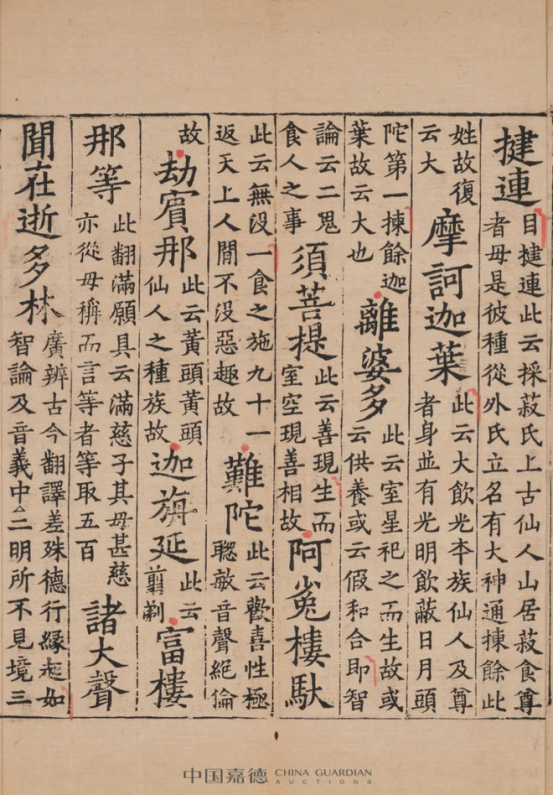 揵連
目揵連此云採菽氏上古仙人山居菽食尊
者母是彼種從外氏立名有大神通揀餘此
姓故復
云大
摩訶迦葉
此云大飲光本族仙人及尊
者身並有光明飲蔽日月頭
陀第一揀餘迦
葉故云大也
離婆多
此云室星祀之而生故或
云供養或云假和合即智
論云二鬼
食人之事
須菩提
此云善現生而
室空現善相故
阿㝹樓馱
此云無没一食之施九十一
返天上人閒不没惡趣故
難陀
此云歡喜性極
聦敏音聲絕倫
故
劫賓那
此云黃頭黃頭
仙人之種族故
迦旃延
此云
翦剃
富樓
那等
此翻滿願具云滿慈子其母甚慈
亦從母稱而言等者等取五百
諸大聲
聞在逝多林
廣辨古今翻譯差殊德行緣起如
智論及音義中二明所不見境三
中国嘉德 CHINA GUARDIAN AUCTIONS